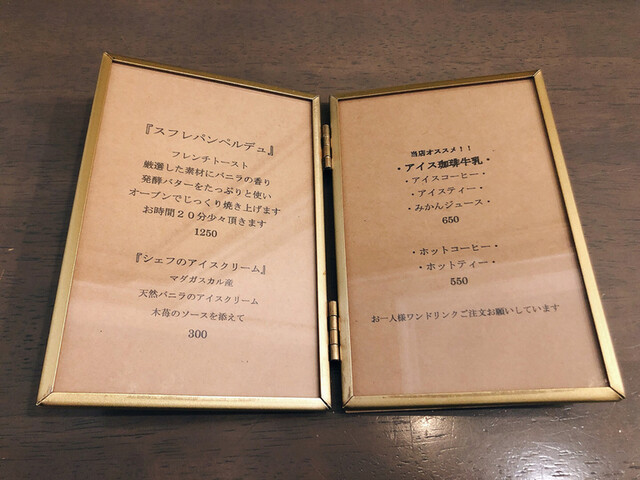 『スフレパンペルデュ』
フレンチトースト
厳選した素材にバニラの香り
発酵バターをたっぷりと使い
オーブンでじっくり焼き上げます
お時間２０分少々頂きます
1250
『シェフのアイスクリーム』
マダガスカル産
天然バニラのアイスクリーム
木苺のソースを添えて
300
当店オススメ！！
・アイス珈琲牛乳・
・アイスコーヒー・
・アイスティー・
・みかんジュース・
650
・ホットコーヒー・
・ホットティー・
550
お一人様ワンドリンクご注文お願いしています